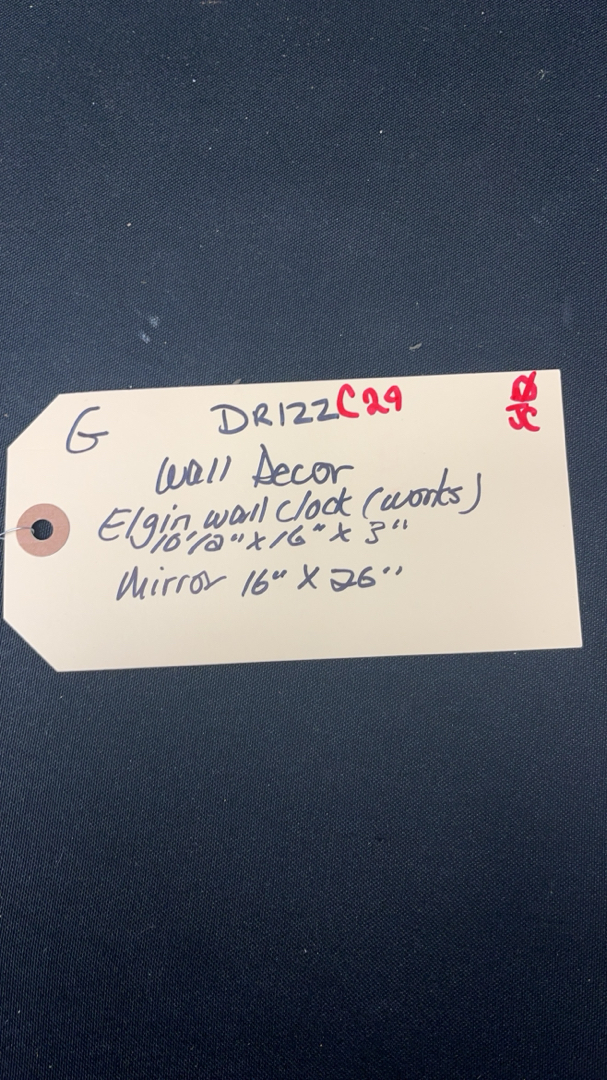 G DR122 C29
JC
Wall Decor
Elgin wall clock (works)
10 1/2" X 16" X 3"
Mirror 16" X 26"